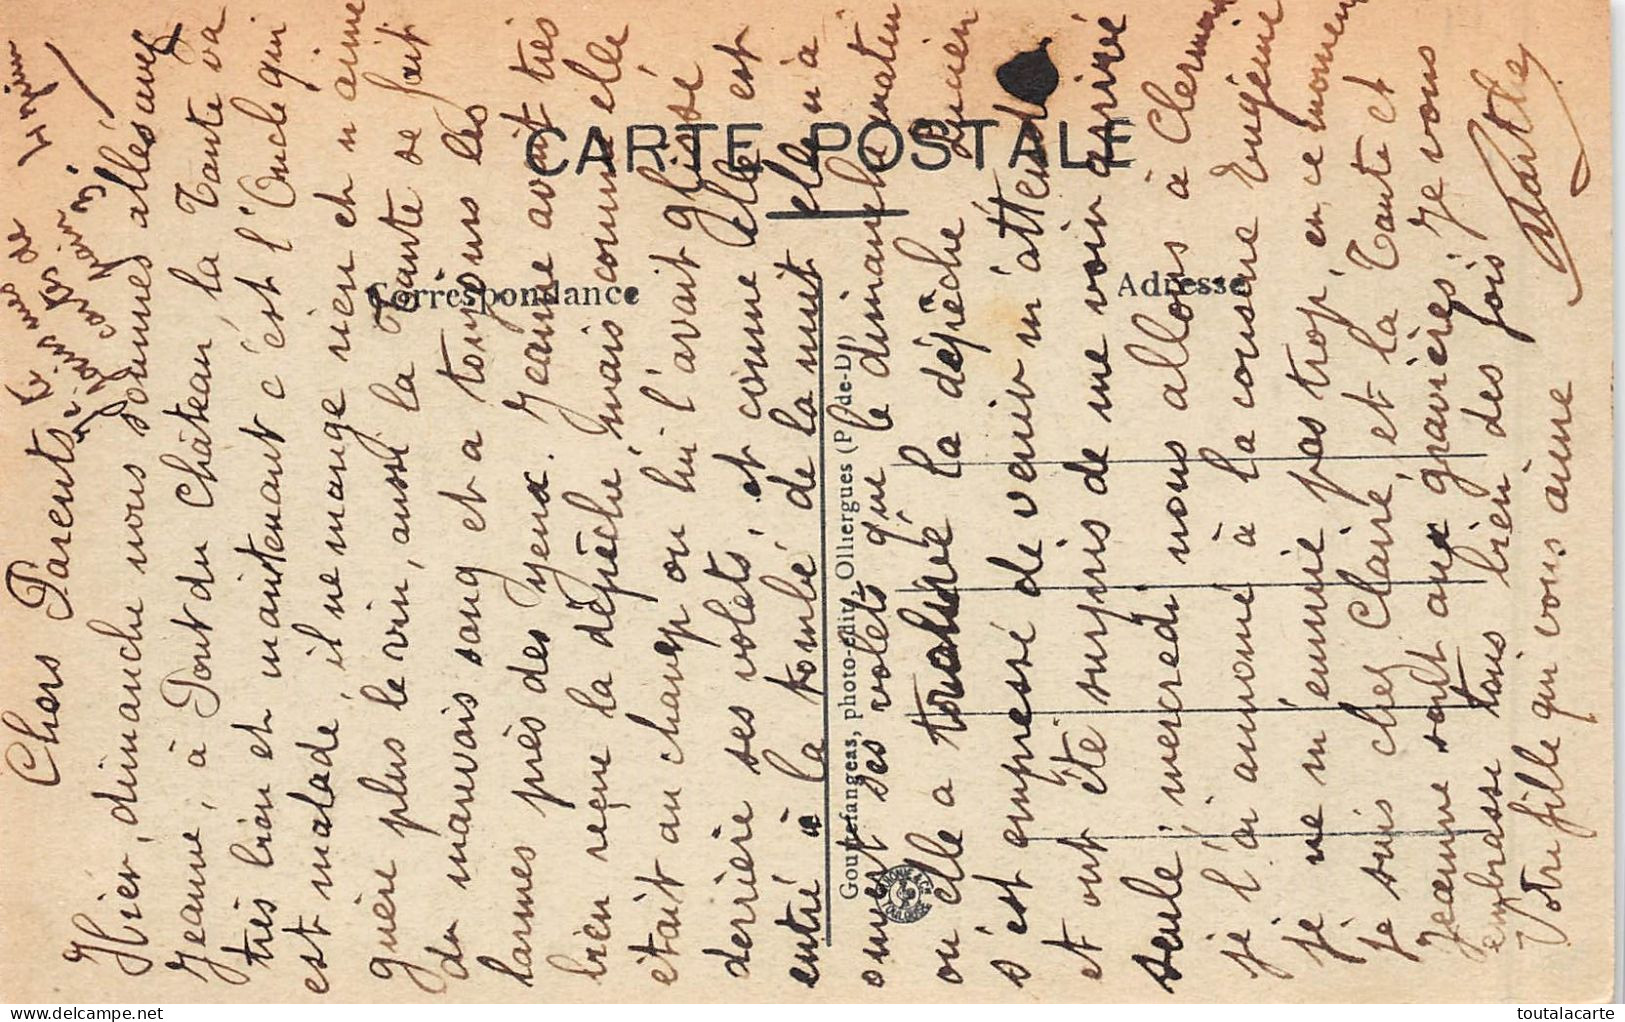 Chers Parents
Hier, dimanche nous sommes allés avec
Jeanne, à Pont du Château la Tante va
très bien et maintenant c'est l'Oncle qui
est malade, il ne mange rien et n'aime
guère plus le vin, aussi la Tante se fait
du mauvais sang et a toujours les
larmes près des yeux. Jeanne avait très
bien reçue la dépêche, mais comme elle
était au champ on lui l'avait glissé
derrière ses volets, et comme elle est
entré à la tombé de la nuit elle n'a
ouvert ses volets que le dimanche matin
ou elle a trouvé la dépêche Lucien
s'est empressé de venir m'attendre
et ont été surpris de me voir arrivé
seule, mercredi nous allons à Clermont
je l'ai annoncé à la cousine Eugénie
je ne m'ennuie pas trop, en ce moment
je suis chez Claire, et la Tante et
Jeanne sont aux gravières. Je vous
embrasse tous bien des fois
Votre fille qui vous aime
Marthe
CARTE POSTALE
Correspondance
Adresse
Gouttefangeas, photo-édit., Olliergues (P.-de-D.)
toutalacarte